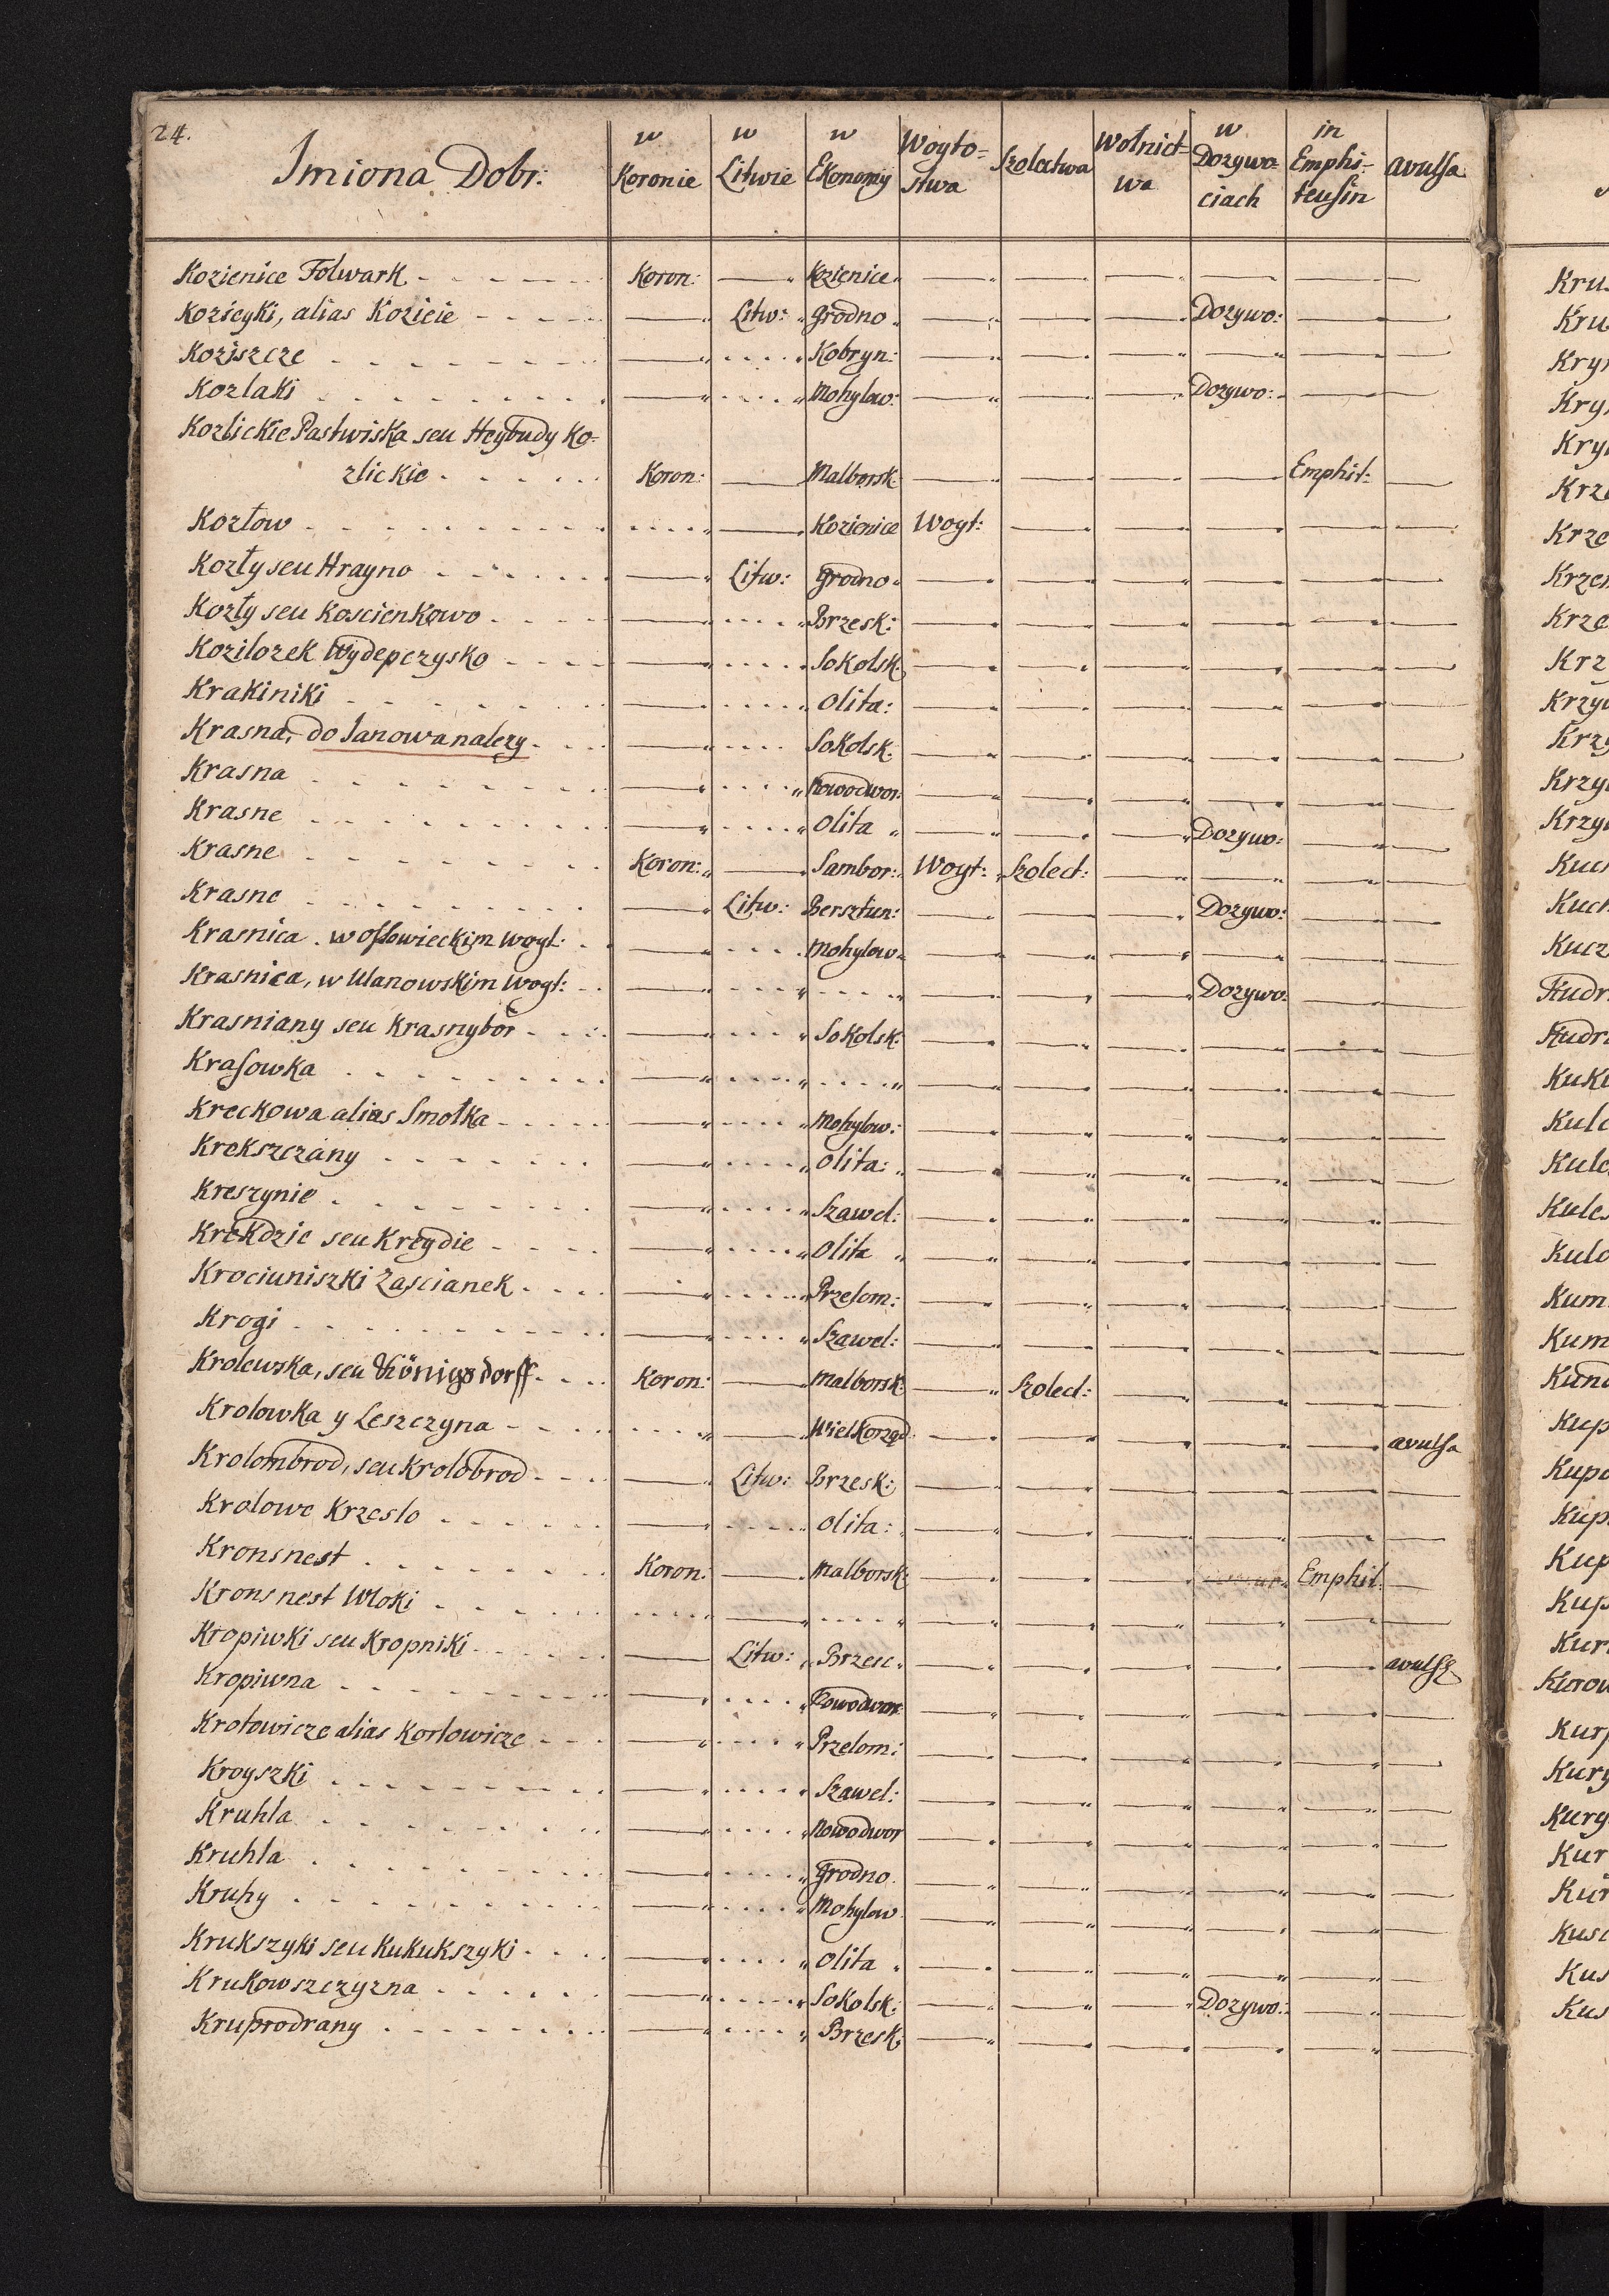 24.
Imiona Dobr: w Koronie w Litwie w Ekonomij Woyto- stwa Szolectwa Wolnict- wa w Dozywo- ciach in Emphi- teusin avulsa
Kozienice Folwark Koron: Kozienice
Kozicyki, alias Kozicie Litw: Grodno Dozywo:
Koziszcze Kobryn:
Kozlaki Mohylow: Dozywo:
Kozlickie Pastwiska seu Heybudy Ko-
zlickie Koron: Malborsk: Emphit:
Kozłow Kozienice Woyt:
Kozły seu Hrayno Litw: Grodno
Kozły seu Koscienkowo Brzesk:
Kozilozek Wydepczysko Sokolsk:
Krakiniki Olita:
Krasna, do Janowa nalezy Sokolsk:
Krasna Nowodwor:
Krasne Olita Dozywo:
Krasne Koron: Sambor: Woyt: Szolect:
Krasne Litw: Bersztun: Dozywo:
Krasnica w Ossowieckim Woyt: Mohylow
Krasnica, w Ulanowskim Woyt: Dozywo:
Krasniany seu Krasnybór Sokolsk:
Krasowka
Kreckowa alias Smołka Mohylow:
Krekszczany Olita:
Kreszynie Szawel:
Krekdzie seu Kreydie Olita
Krociuniszki Zascianek Przelom:
Krogi Szawel:
Krolewska, seu Königsdorff Koron: Malborsk: Szolect:
Krolowka y Leszczyna Wielkorząd: avulsa
Krolombrod, seu Krolobrod Litw: Brzesk:
Krolowe Krzeslo Olita:
Kronsnest Koron: Malborsk: Emphit:
Kronsnest Wloki
Kropiwki seu Kropniki Litw: Brzesc avulsa
Kropiwna Nowodwor
Krotowicze alias Kortowicze Przelom:
Kroyszki Szawel:
Kruhla Nowodwor
Kruhla Grodno
Kruhy Mohylow
Krukszyki seu Kukukszyki Olita
Krukowszczyzna Sokolsk: Dozywo:
Kruprodrany Brzesk: